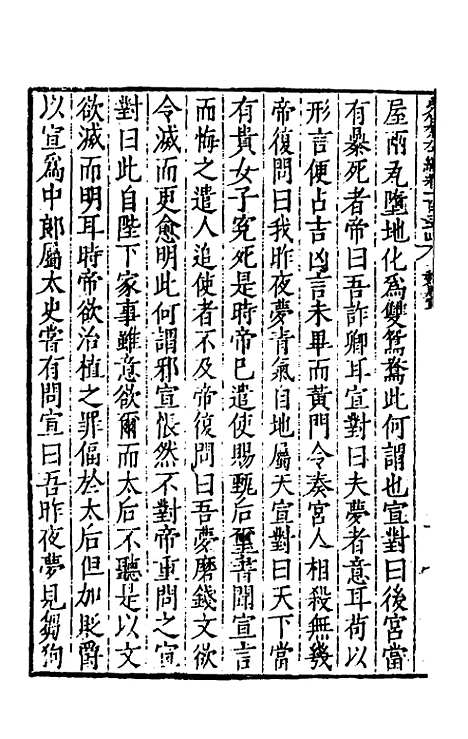 屋兩瓦墮地化爲雙鴛鴦此何謂也宣對曰後宮當
有暴死者帝曰吾詐卿耳宣對曰夫夢者意耳苟以
形言便占吉凶言未畢而黃門令奏宮人相殺無幾
帝復問曰我昨夜夢青氣自地屬天宣對曰天下當
有貴女子冤死是時帝已遣使賜甄后璽書聞宣言
而悔之遣人追使者不及帝復問曰吾夢磨錢文欲
令滅而更愈明此何謂邪宣悵然不對帝重問之宣
對曰此自陛下家事雖意欲爾而太后不聽是以文
欲滅而明耳時帝欲治植之罪偪於太后但加貶爵
以宣爲中郎屬太史嘗有問宣曰吾昨夜夢見芻狗